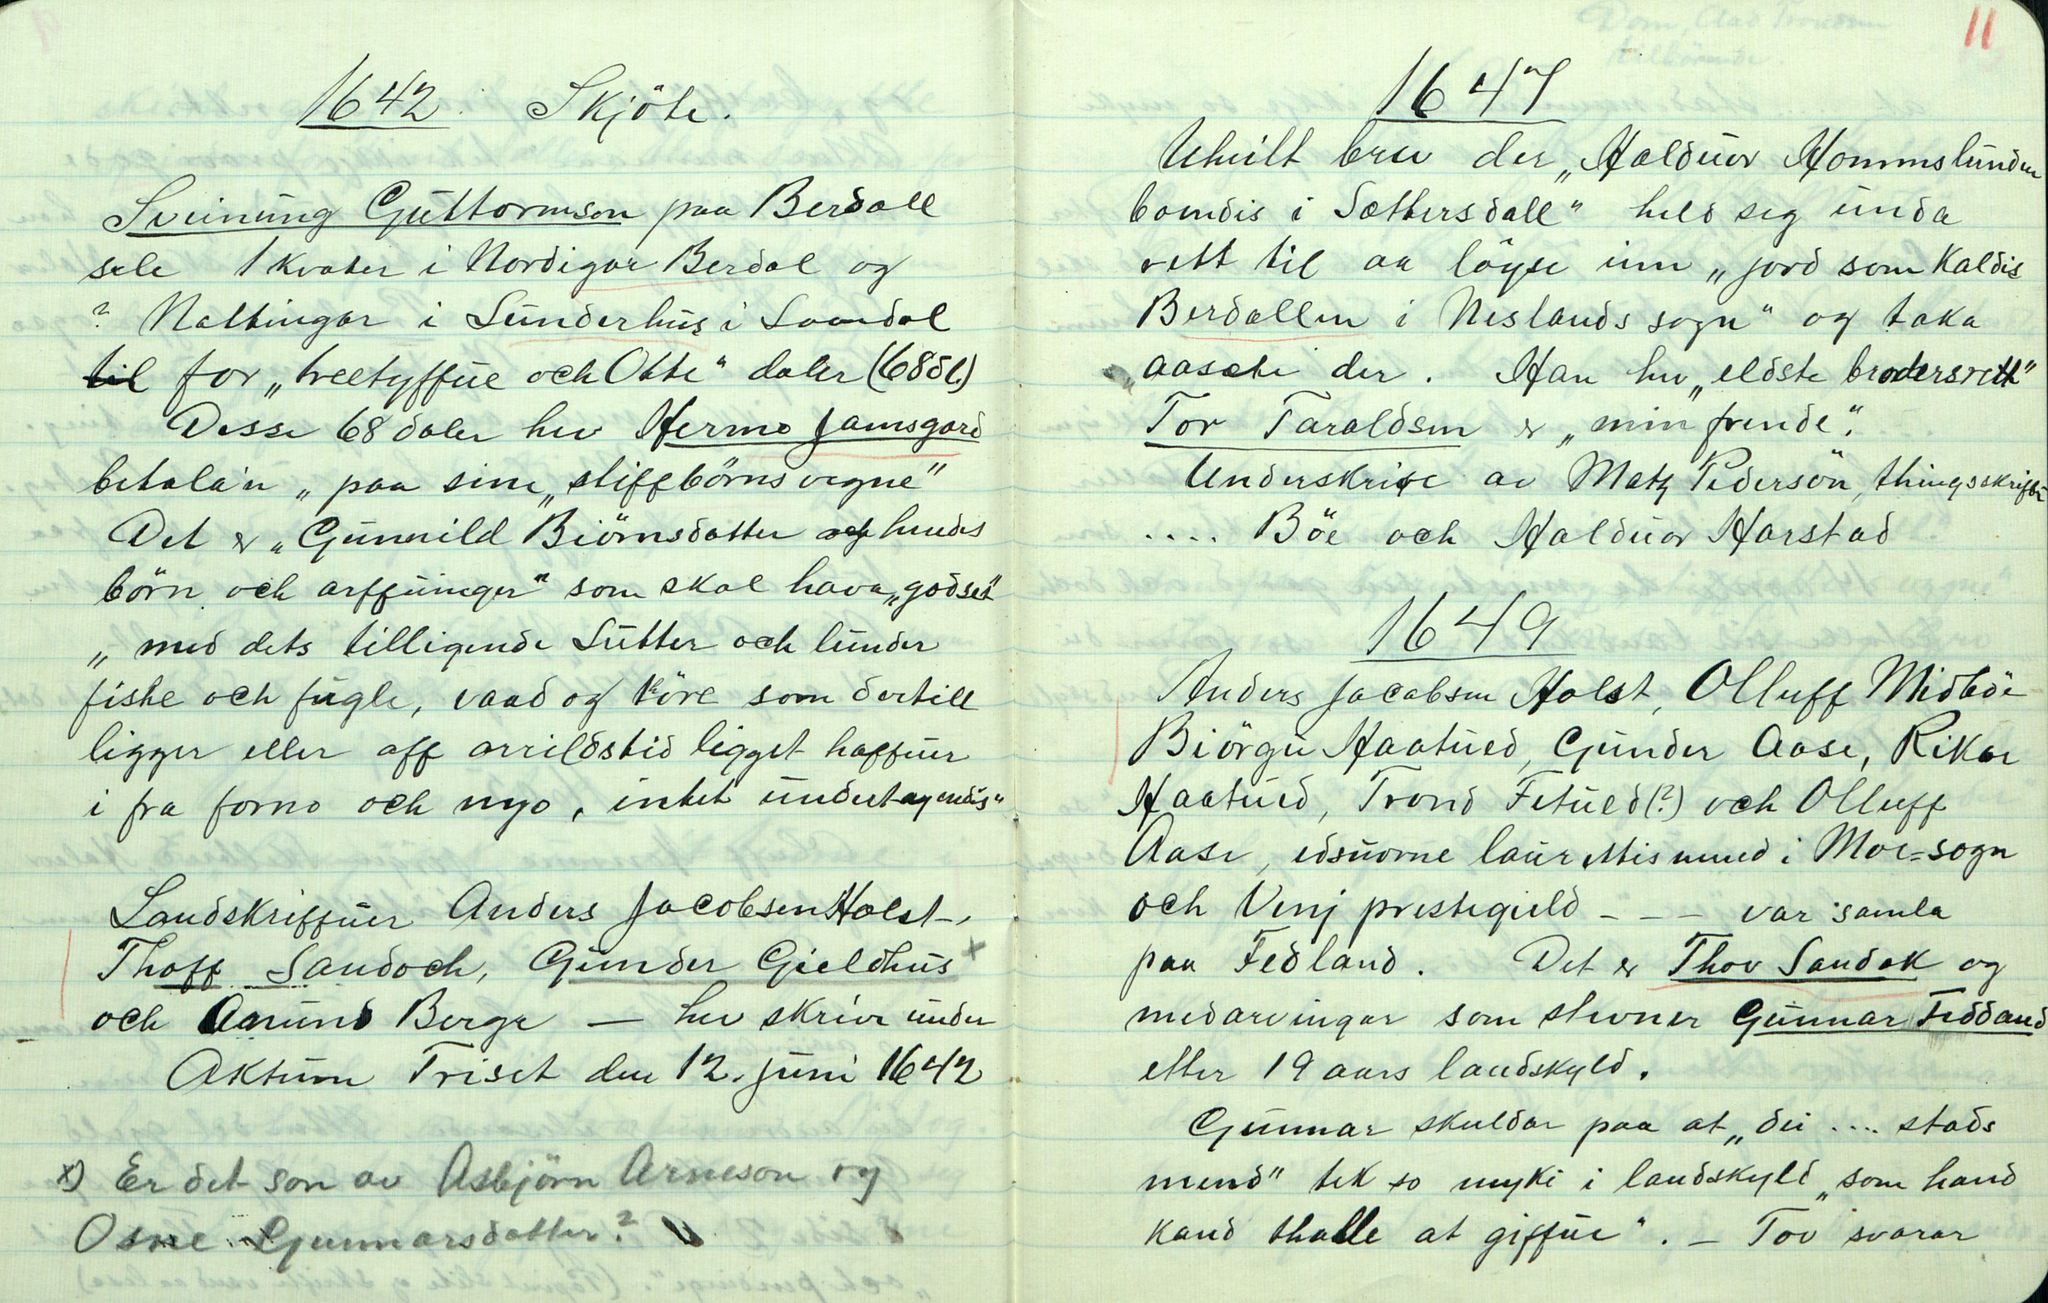 1642. Skjöte.
Sveinung Guttormson paa Berdall
sele 1 kvater i Nordigar Berdal og
? Naltingar i Sunderhus i Lomdal
til for „treetyffue och Otte“ daler (68 dl.)
Desse 68 daler hev Hermo Jamsgard
betala'n „paa sine „stiffbörns vegne“
Det er „Gunnild Biörnsdatter och hendes
börn och arffuinger“ som skal hava „godset“
„med dets tilligende Lutter och lunder
fiske och fugle, vaad og töre som dertill
ligger eller aff arrildstid ligget haffuer
i fra forno och nyo, intet undertagendis“
Landskriffuer Anders Jacobsen Holst,
Thoff Sandoch, Gunder Gieldhus x
och Amund Berge — hev skrive under
Aktum Triset den 12. juni 1642
x) Er det son av Asbjörn Arneson og
Osne Gunnarsdatter?
11
1647
Uhilt brev der „Halduor Hommslunden
boendis i Sæthersdall“ held seg unda
rett til aa löyse inn „jord som kaldis
Berdallen i Neslands sogn“ og taka
„aasete der. Han hev „eldste brodersrett“
Tor Taraldsen er „min frende“.
Underskrive av Matz Pedersön, thingsskriffr
.... Böe och Halduor Harstad
1649
Anders Jacobsen Holst, Olluff Midböe
Biörgu Haatued, Gunder Aase, Rikar
Haatued, Trond Fetued (?) och Olluff
Aase, edsuorne laurettismend i Moe=sogn
och Vinj prestegield - - - var samla
paa Fedland. Det er Thov Sandok og
medarvingar som stevner Gunnar Feddand
etter 19 aars landskyld.
Gunnar skuldar paa at „dei .... stads
mend“ tek so mykje i landskyld „som hand
kand thaalle at giffue“. — Tov svarar